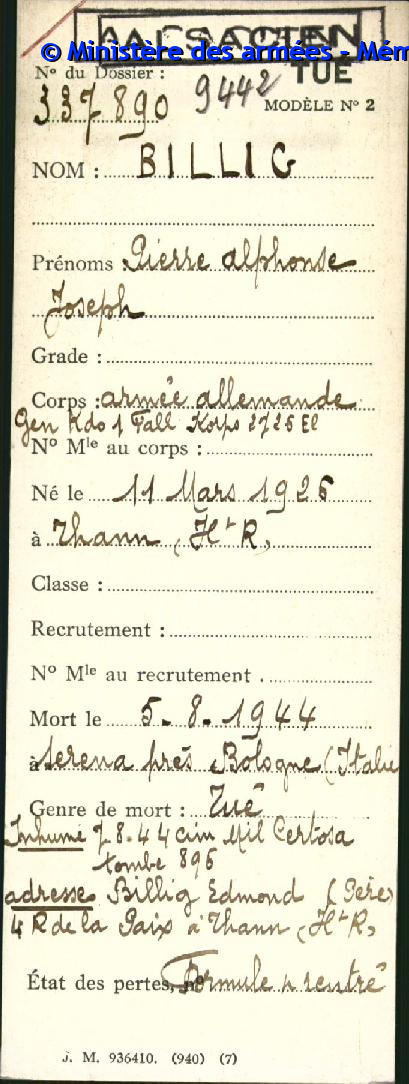 ALSACIEN
© Ministère des armées - Mém
N° du Dossier :
TUÉ
337890
9442
MODÈLE N° 2
NOM : BILLIG
Prénoms : Pierre Alphonse
Joseph
Grade :
Corps : armée allemande
Gen Kdo 1 Fall Korps 2725 El
N° Mle au corps :
Né le 11 Mars 1926
à Thann (Ht R)
Classe :
Recrutement :
N° Mle au recrutement .
Mort le 5.8.1944
à Serena près Bologne (Italie
Genre de mort : Tué
Inhumé 7.8.44 cim Mil Certosa
tombe 896
adresse Billig Edmond (Père)
4 R de la Paix à Thann (Ht R)
État des pertes, n° Formule n rentré
J. M. 936410. (940) (7)